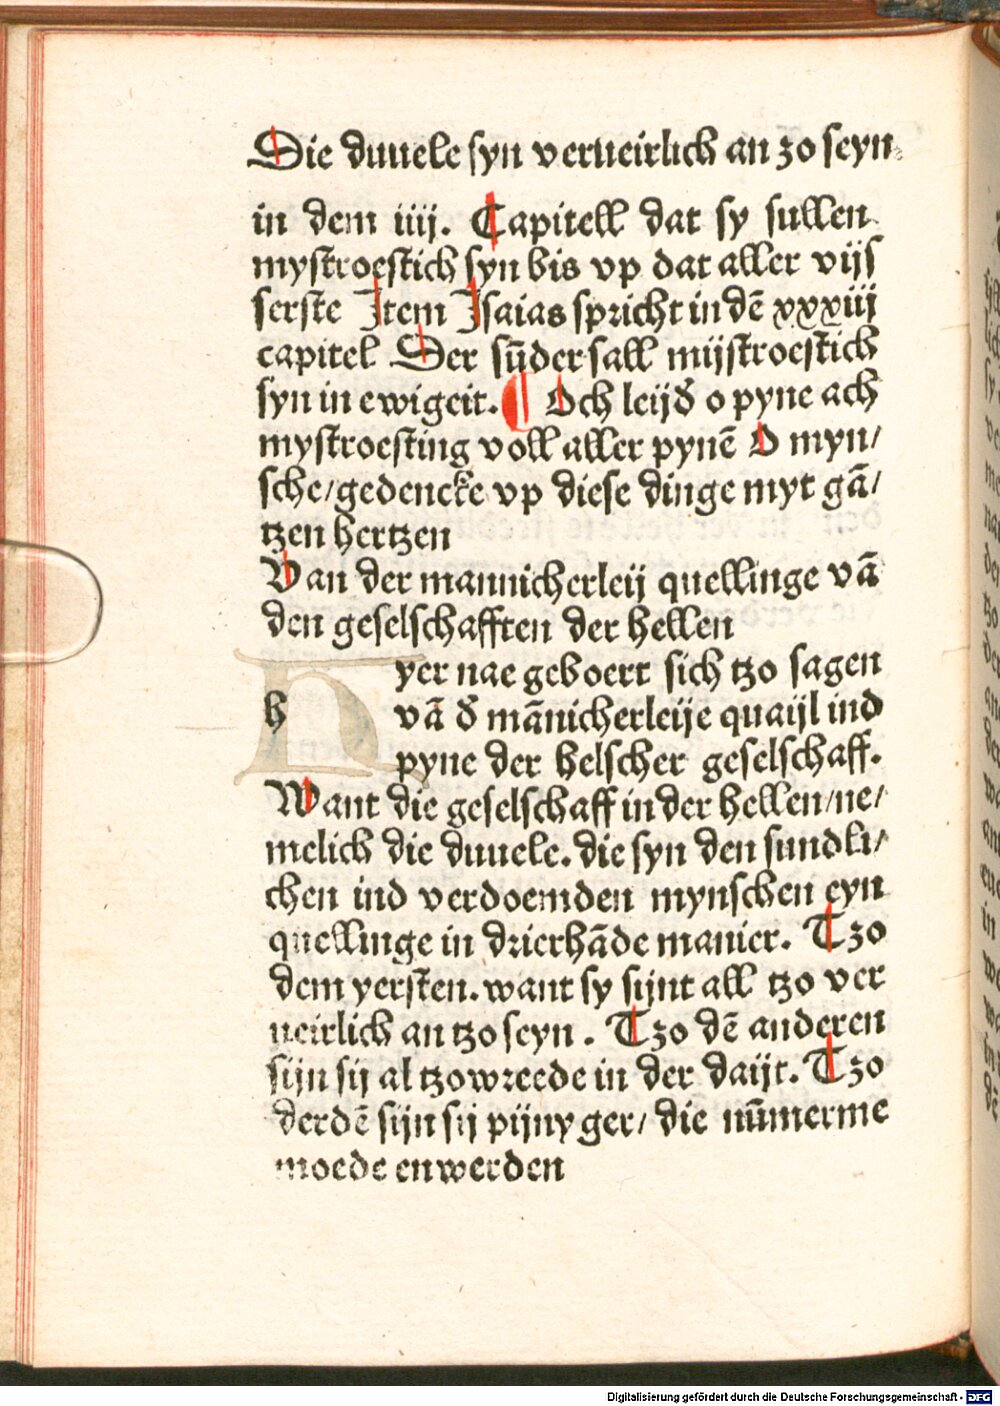 Die duuele syn verueirlich an zo seyn.
in dem iiij. Capitell dat sy sullen
mystroestich syn bis vp dat aller vijs
serste Item Isaias spricht in dē xxxiij
capitel Der sūder sall mijstroestich
syn in ewigeit. ¶ Och leijd o pyne ach
mystroesting voll aller pynē O myn/
sche/gedencke vp diese dinge myt gā/
tzen hertzen
Van der mannicherleij quellinge vā
den geselschafften der hellen
yer nae geboert sich tzo sagen
h vā d mānicherleije quaijl ind
pyne der helscher geselschaff.
Want die geselschaff in der hellen/ne/
melich die duuele. die syn den sundli/
chen ind verdoemden mynschen eyn
quellinge in drierhāde manier. Tzo
dem yersten. want sy sijnt all tzo ver
ueirlich an tzo seyn. Tzo dē anderen
sijn sij al tzo wreede in der daijt. Tzo
derdē sijn sij pijnyger/ die nūmerme
moede en werden
Digitalisierung gefördert durch die Deutsche Forschungsgemeinschaft - DFG